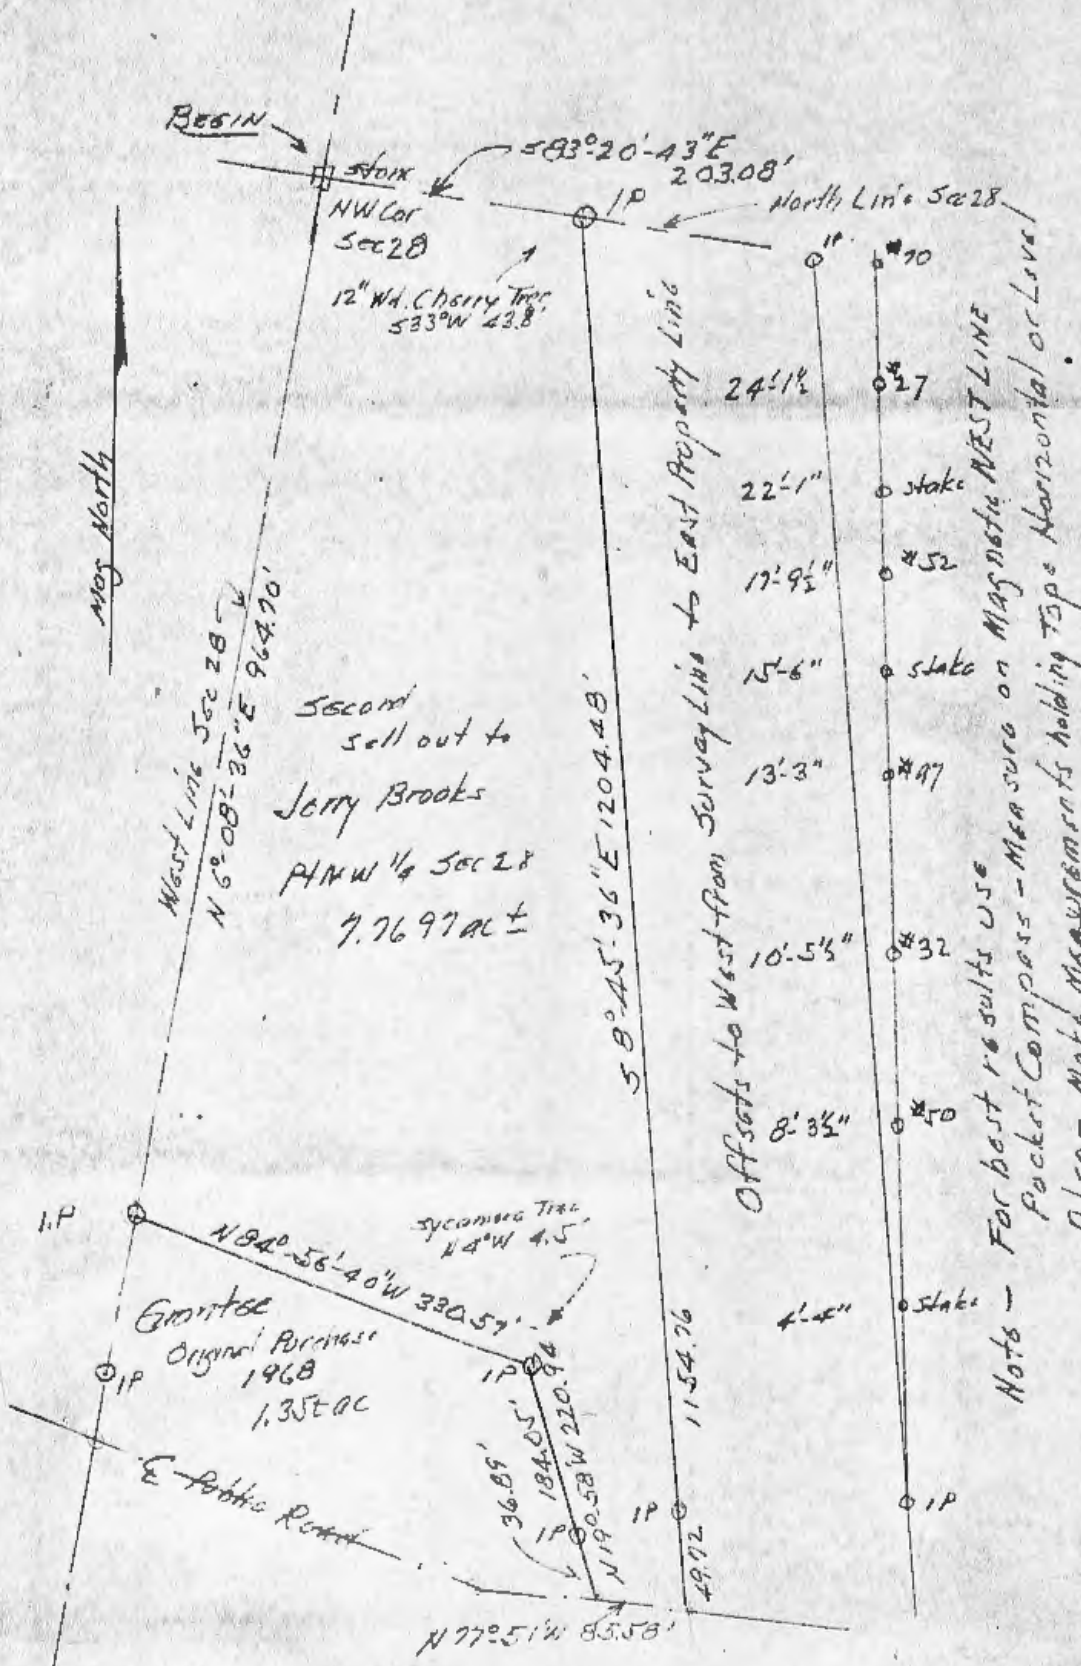 BEGIN
stone
NW Cor
Sec 28
S83°-20'-43"E
203.08'
IP
North Line Sec 28
12" Wd. Cherry Tree
S33°W 43.8'
Mag North
West Line Sec 28
N 6°-08'-36"E 964.70'
Second
sell out to
Jerry Brooks
Pt NW 1/4 Sec 28
7.7697 ac ±
S 8°-45'-36"E 1204.48'
Offsets to West from Survey Line to East Property Line
IP
#70
24'-1½"
#27
22'-1"
stake
17'-9½"
#52
15'-6"
stake
13'-3"
#97
10'-5½"
#32
8'-3½"
#50
4'-4"
stake
IP
Note - For best results use
Pocket Compass - Measure on Magnetic WEST LINE
Also - Make Measurements holding Tape Horizontal or Level
I.P
N84°-56'-40"W 330.57'
Sycamore Tree
N4°W 4.5'
Grantee
Original Purchase
1968
1.35± ac
IP
IP
36.89'
184.05'
N19°-58'W 220.94
IP
IP
1154.76
49.72
℄ Public Road
N77°-51'W 85.58'